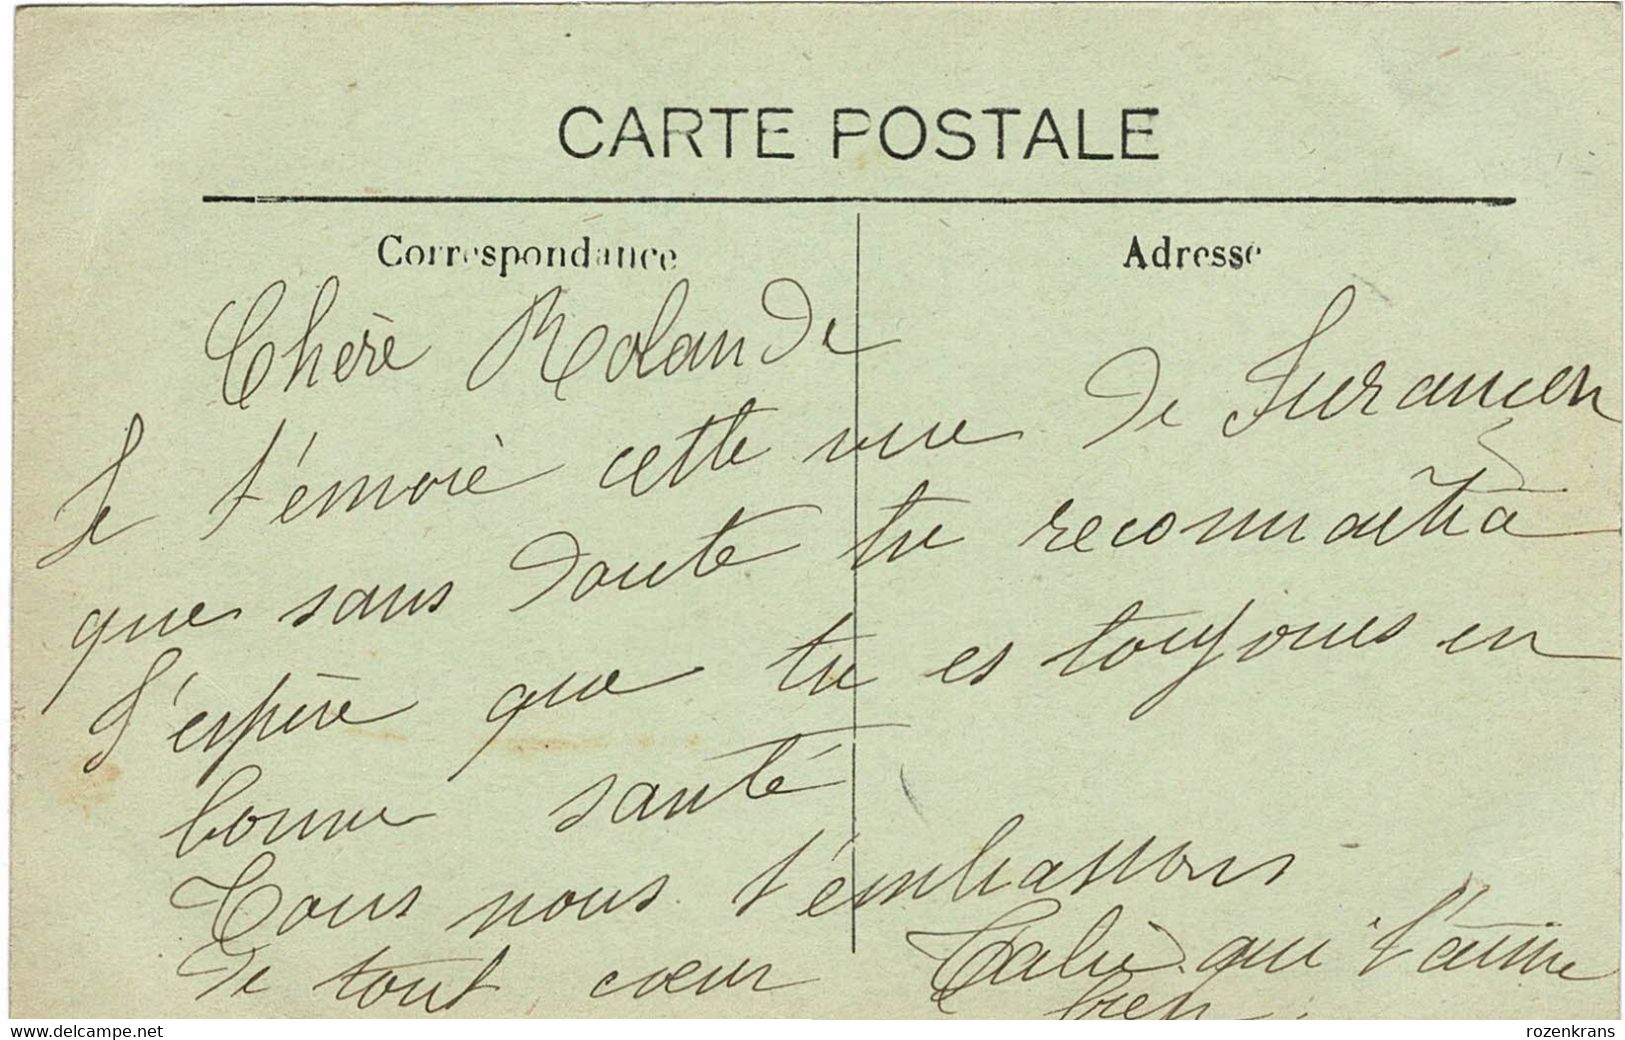 CARTE POSTALE
Correspondance Adresse
Chère Rolande
Je t'envoie cette vue de Jurançon
que sans doute tu reconnaîtra
J'espère que tu es toujours en
bonne santé
Tous nous t'embrassons
de tout cœur qui t'aime
bien
www.delcampe.net rozenkrans